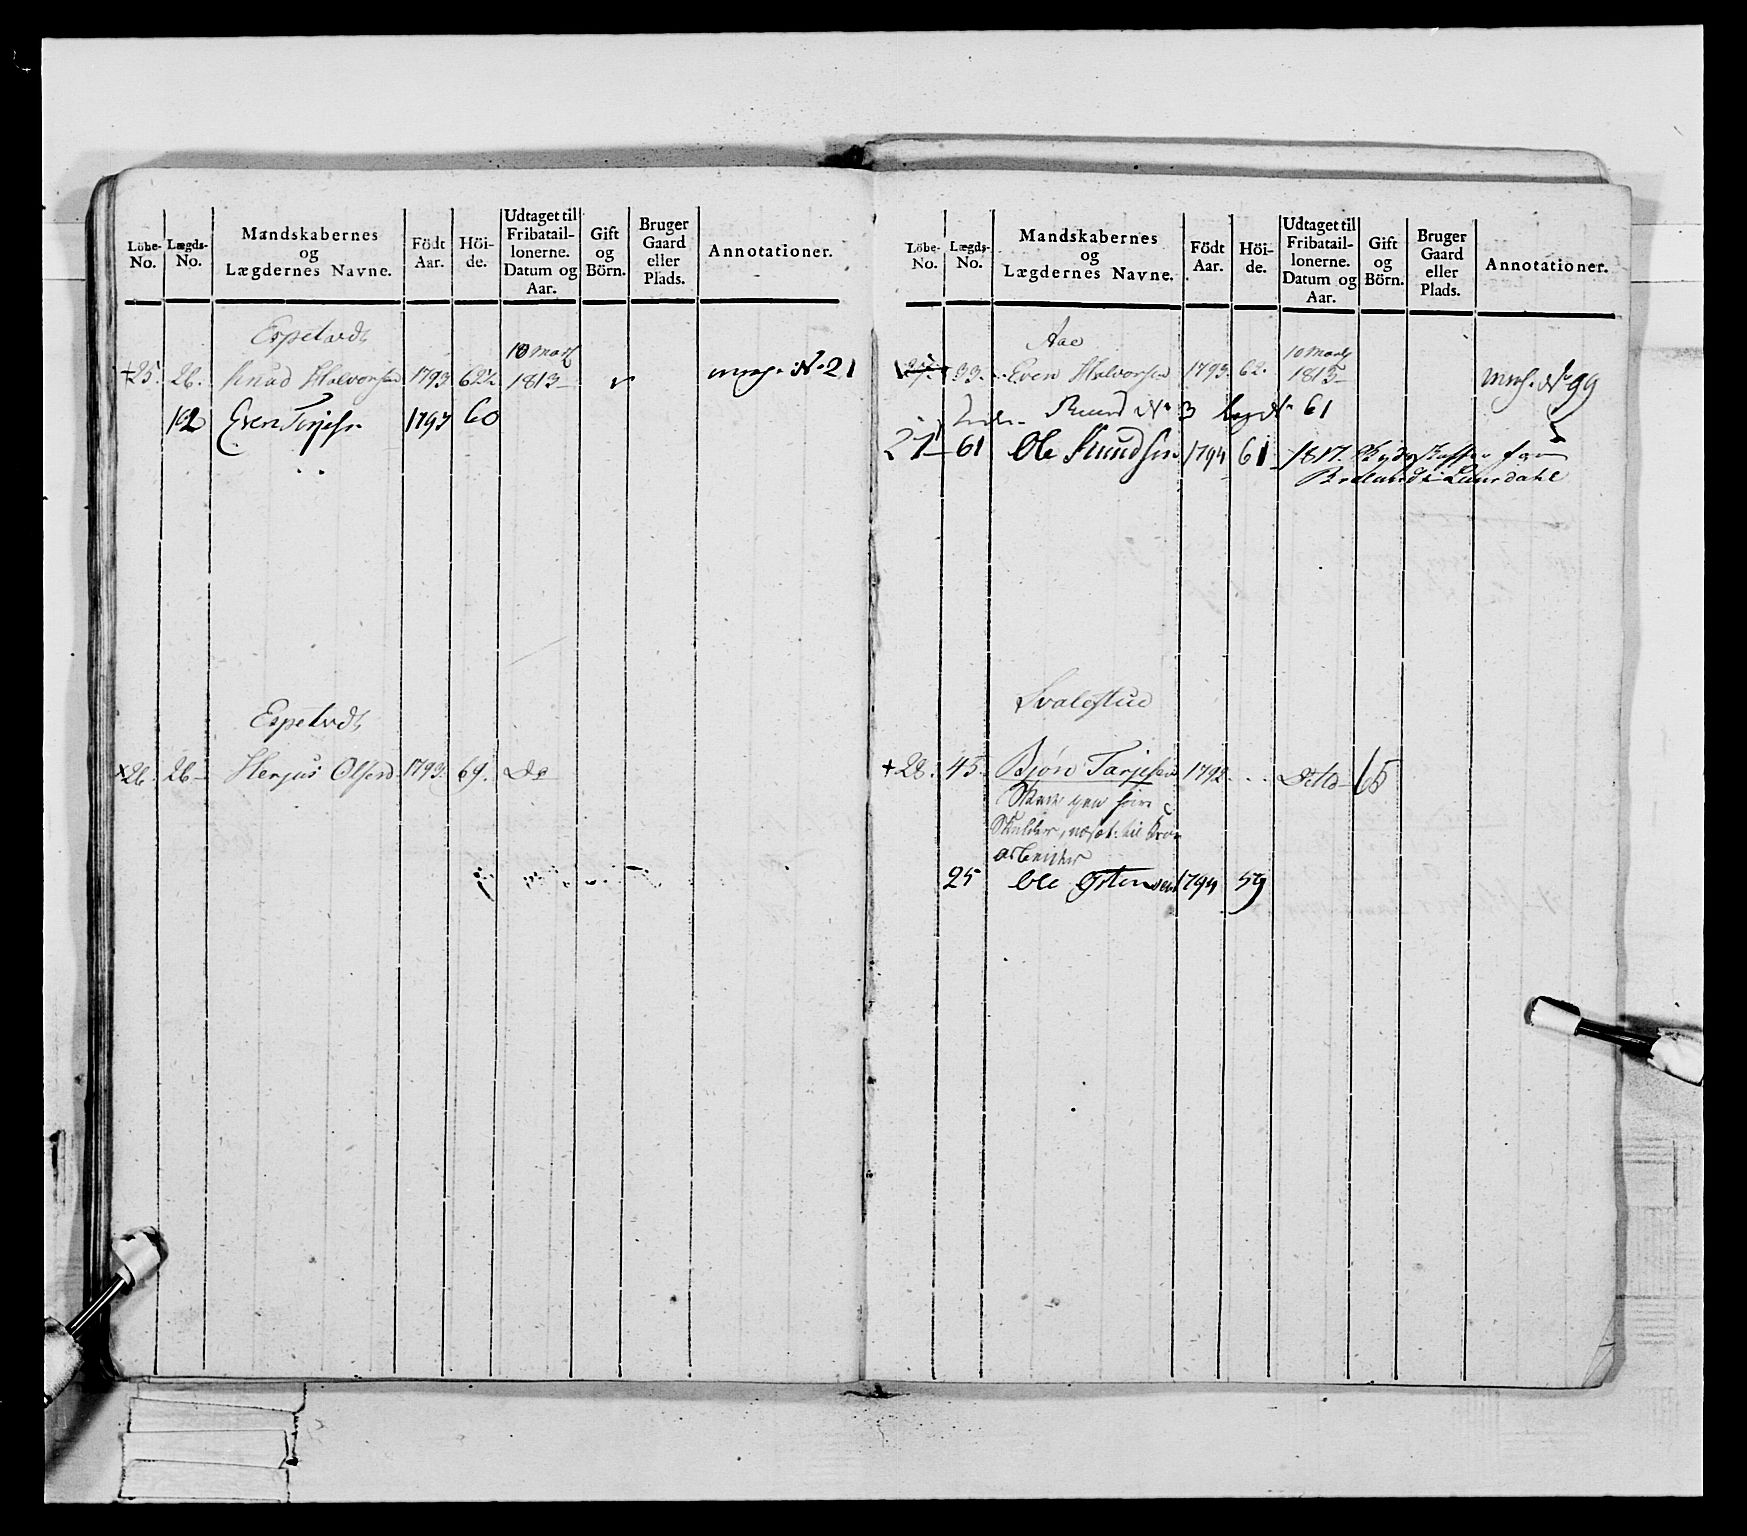 Löbe-No. Lægds-No. Mandskabernes og Lægdernes Navne. Födt Aar. Höi-de. Udtaget til Fribatail-lonerne. Datum og Aar. Gift og Börn. Bruger Gaard eller Plads. Annotationer.
Espetvedt
+25. 26. Knud Halvorsen 1793 62½ 10 1813 N 21
12 Even 1793 60
Espetvedt
×26. 26 Herjus Olsen 1793. 69. Do
Löbe-No. Lægds-No. Mandskabernes og Lægdernes Navne. Födt Aar. Höi-de. Udtaget til Fribatail-lonerne. Datum og Aar. Gift og Börn. Bruger Gaard eller Plads. Annotationer.
Aae
27. 33. Even Halvorsen 1793. 62. 10 1813 N 99
No 3 61
27 61 Ole Knudsen 1794 61 1817.
i Laurdahl
Svalestue
+28. 45. Bjørn Tarjesen 1792 Dito 65
til
arbeider
25 Ole Østensen 1794 59